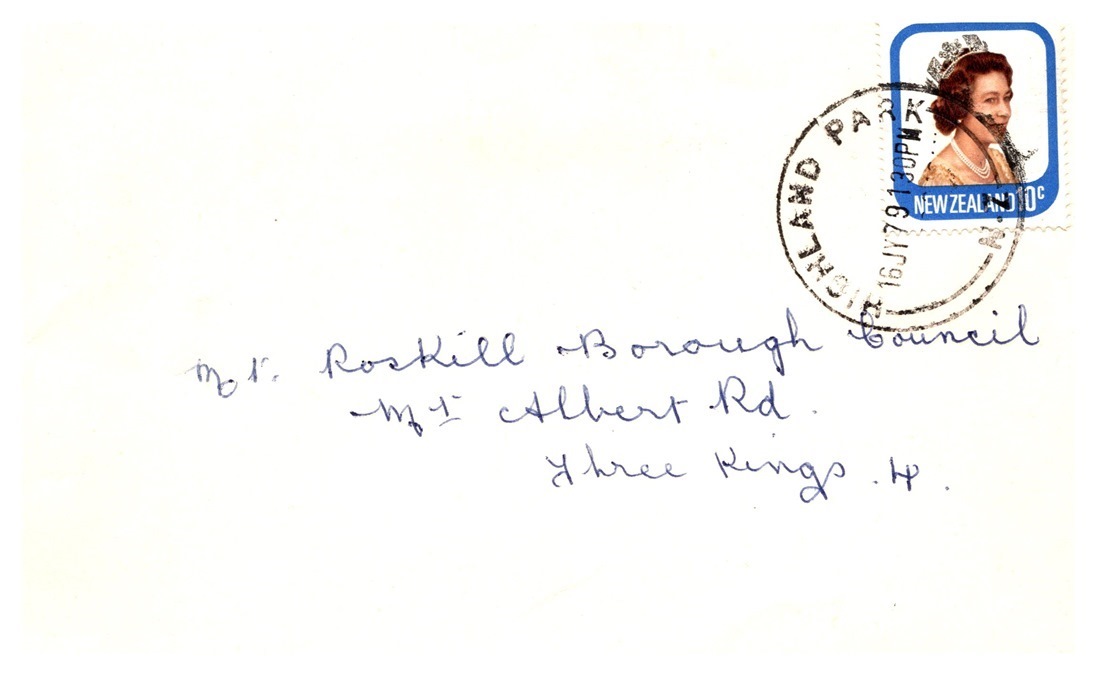 NEW ZEALAND 10c
HIGHLAND PARK N.Z.
16JY79 130PM
Mt. Roskill Borough Council
Mt Albert Rd.
Three Kings. 4.